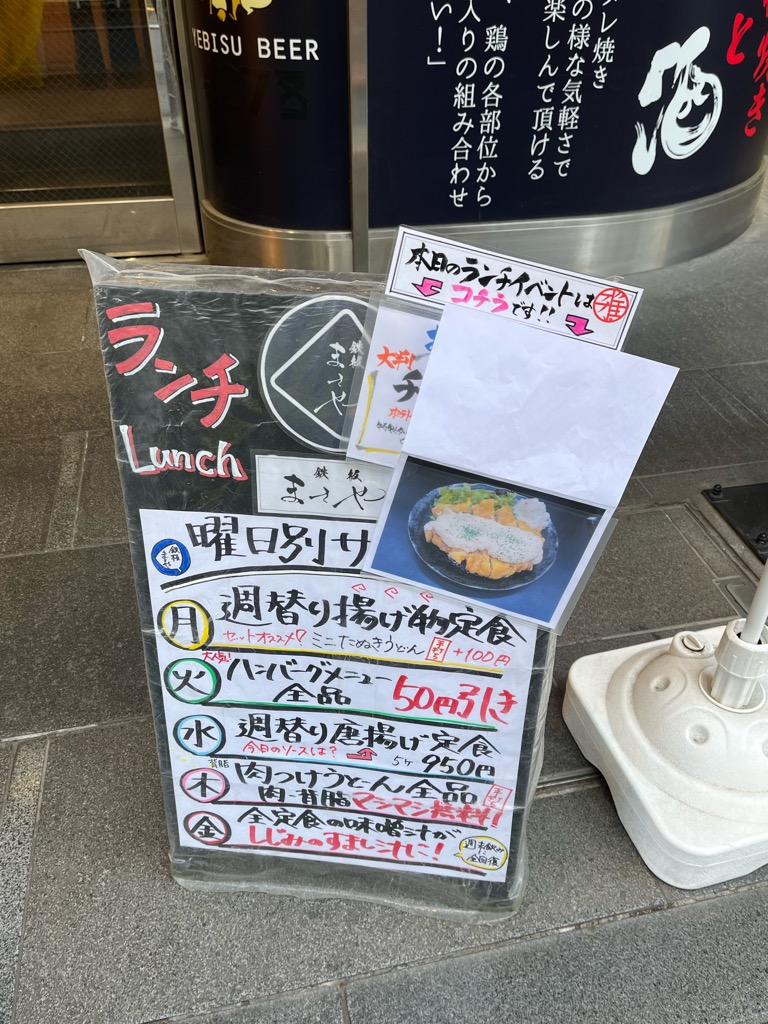 YEBISU BEER
タレ焼き
の様な気軽さで
楽しんで頂ける
、鶏の各部位から
入りの組み合わせ
い！」
焼き
と
酒
本日のランチイベントは
コチラです!!
雅
ランチ
Lunch
鉄板
まさや
大判
チ
鉄板
まさや
曜日別サ
鉄板
まさや
月
週替り揚げ物定食
セットオススメ！ミニたぬきうどん +100円
大人気!
火
ハンバーグメニュー
全品
50円引き
水
週替り唐揚げ定食
今日のソースは？
5ケ 950円
木
背脂
肉つけうどん全品
肉・背脂マシマシ無料！
金
全定食の味噌汁が
しじみのすまし汁に！
週末飲みに
全回復